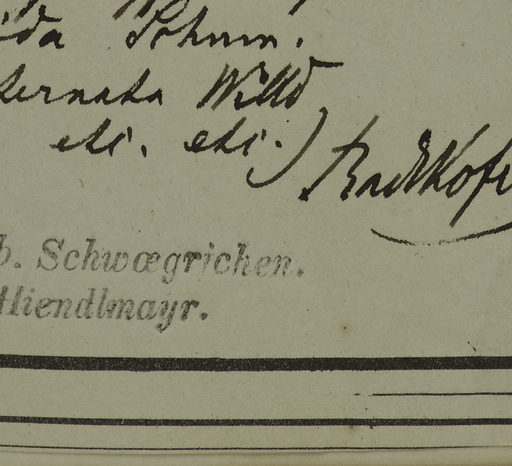 ida Schum.
ternata Willd
etc. etc.) Radlkofe
b. Schwœgrichen.
Hiendlmayr.